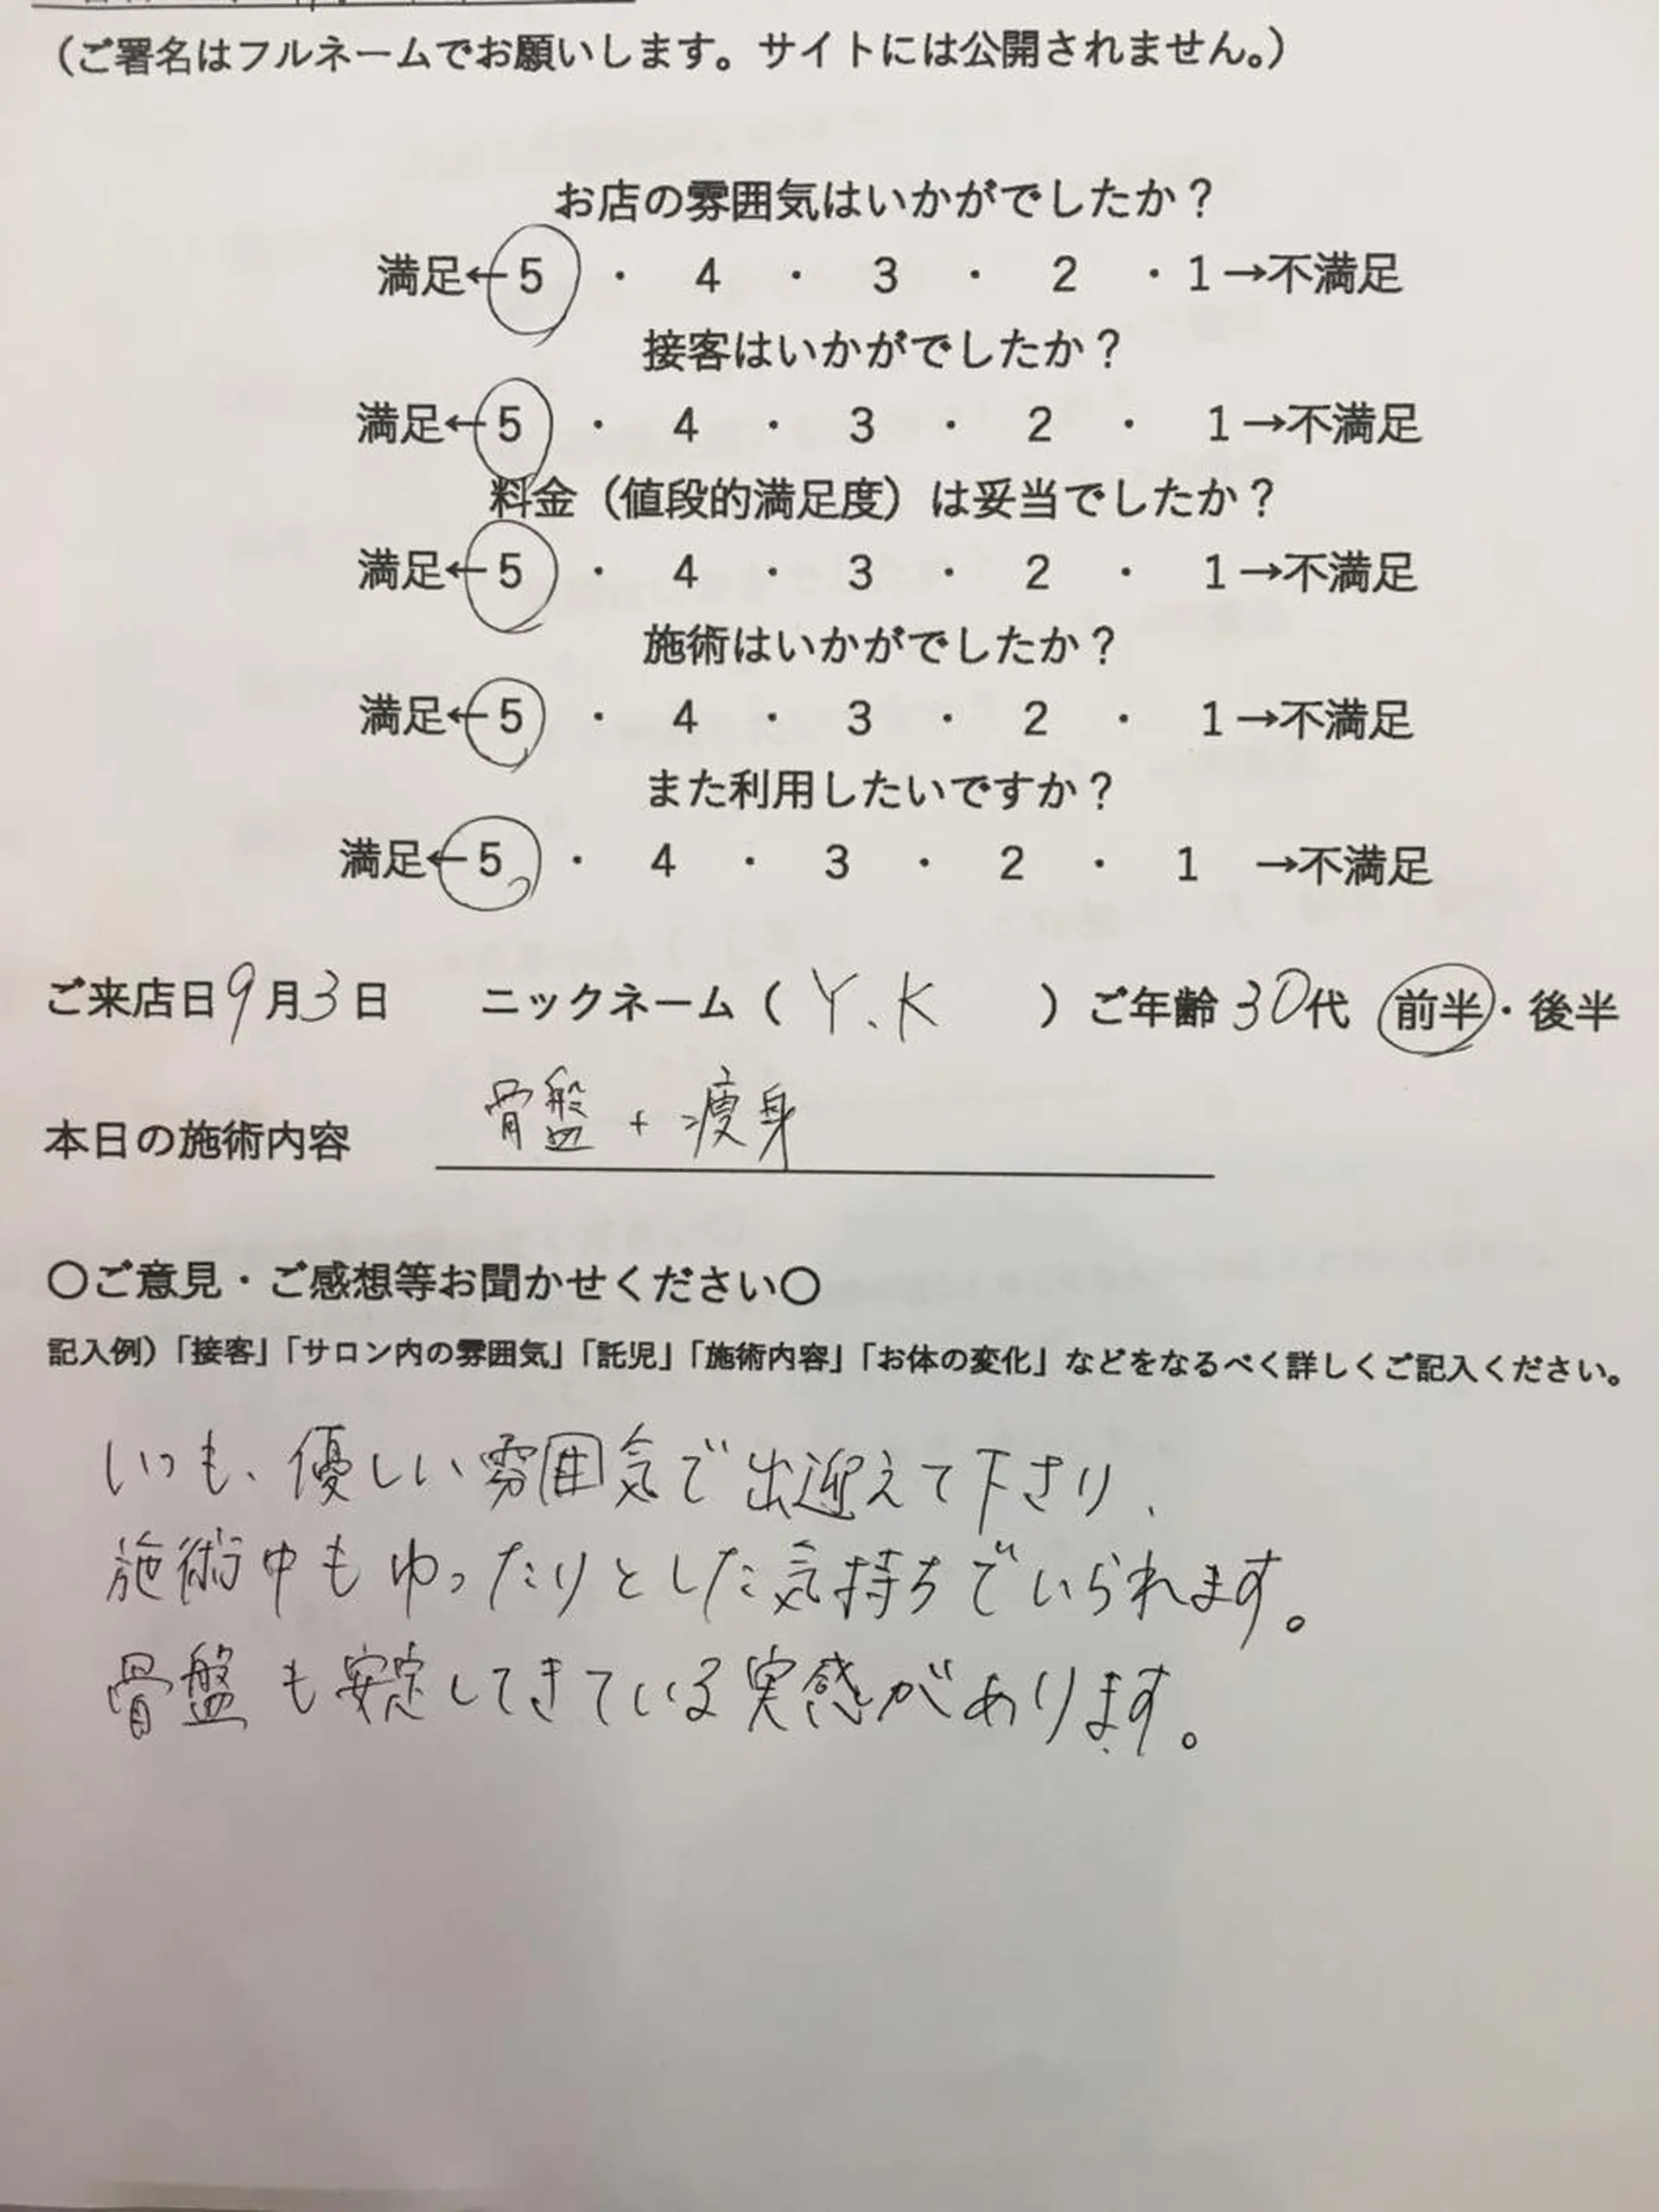 （ご署名はフルネームでお願いします。サイトには公開されません。）
お店の雰囲気はいかがでしたか？
満足←5 ・ 4 ・ 3 ・ 2 ・ 1→不満足
接客はいかがでしたか？
満足←5 ・ 4 ・ 3 ・ 2 ・ 1→不満足
料金（値段的満足度）は妥当でしたか？
満足←5 ・ 4 ・ 3 ・ 2 ・ 1→不満足
施術はいかがでしたか？
満足←5 ・ 4 ・ 3 ・ 2 ・ 1→不満足
また利用したいですか？
満足←5 ・ 4 ・ 3 ・ 2 ・ 1 →不満足
ご来店日9月3日 ニックネーム（ Y.K ）ご年齢30代 前半・後半
本日の施術内容 骨盤+痩身
〇ご意見・ご感想等お聞かせください〇
記入例）「接客」「サロン内の雰囲気」「託児」「施術内容」「お体の変化」などをなるべく詳しくご記入ください。
いつも、優しい雰囲気で出迎えて下さり、
施術中もゆったりとした気持ちでいられます。
骨盤も安定してきている実感があります。